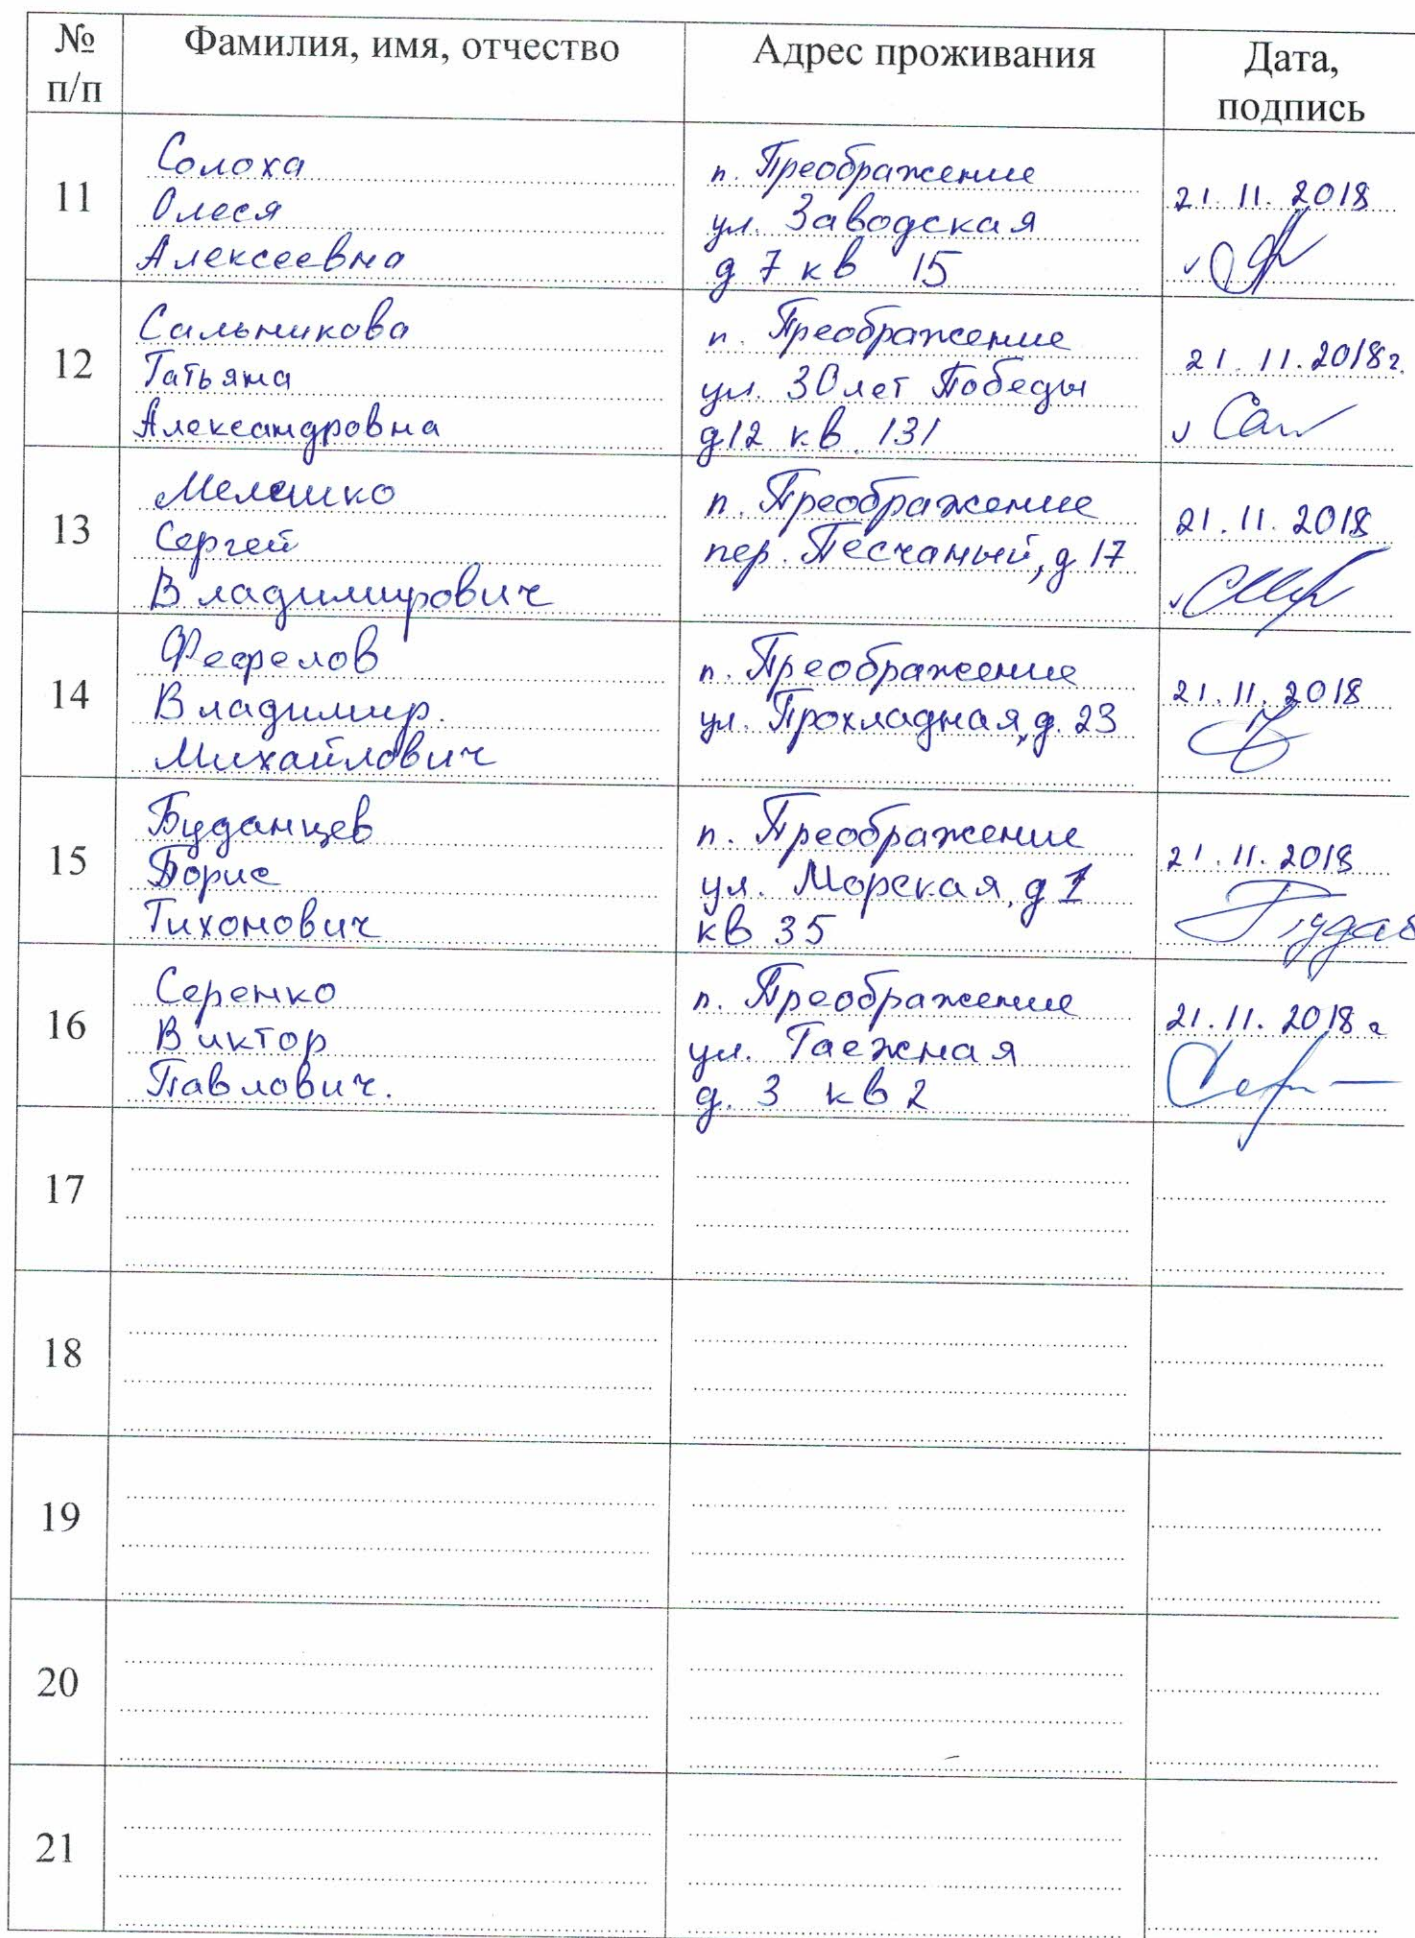 № п/п
Фамилия, имя, отчество
Адрес проживания
Дата, подпись
11
Солоха
Олеся
Алексеевна
п. Преображение
ул. Заводская
д 7 кв 15
21. 11. 2018
12
Сальникова
Татьяна
Александровна
п. Преображение
ул. 30 лет Победы
д12 кв. 131
21. 11. 2018г.
13
Мелешко
Сергей
Владимирович
п. Преображение
пер. Песчаный, д 17
21. 11. 2018
14
Фефелов
Владимир.
Михайлович
п. Преображение
ул. Прохладная, д. 23
21. 11. 2018
15
Буданцев
Борис
Тихонович
п. Преображение
ул. Морская, д 1
кв 35
21. 11. 2018
16
Серенко
Виктор
Павлович.
п. Преображение
ул. Таежная
д. 3 кв 2
21. 11. 2018 г
17
18
19
20
21